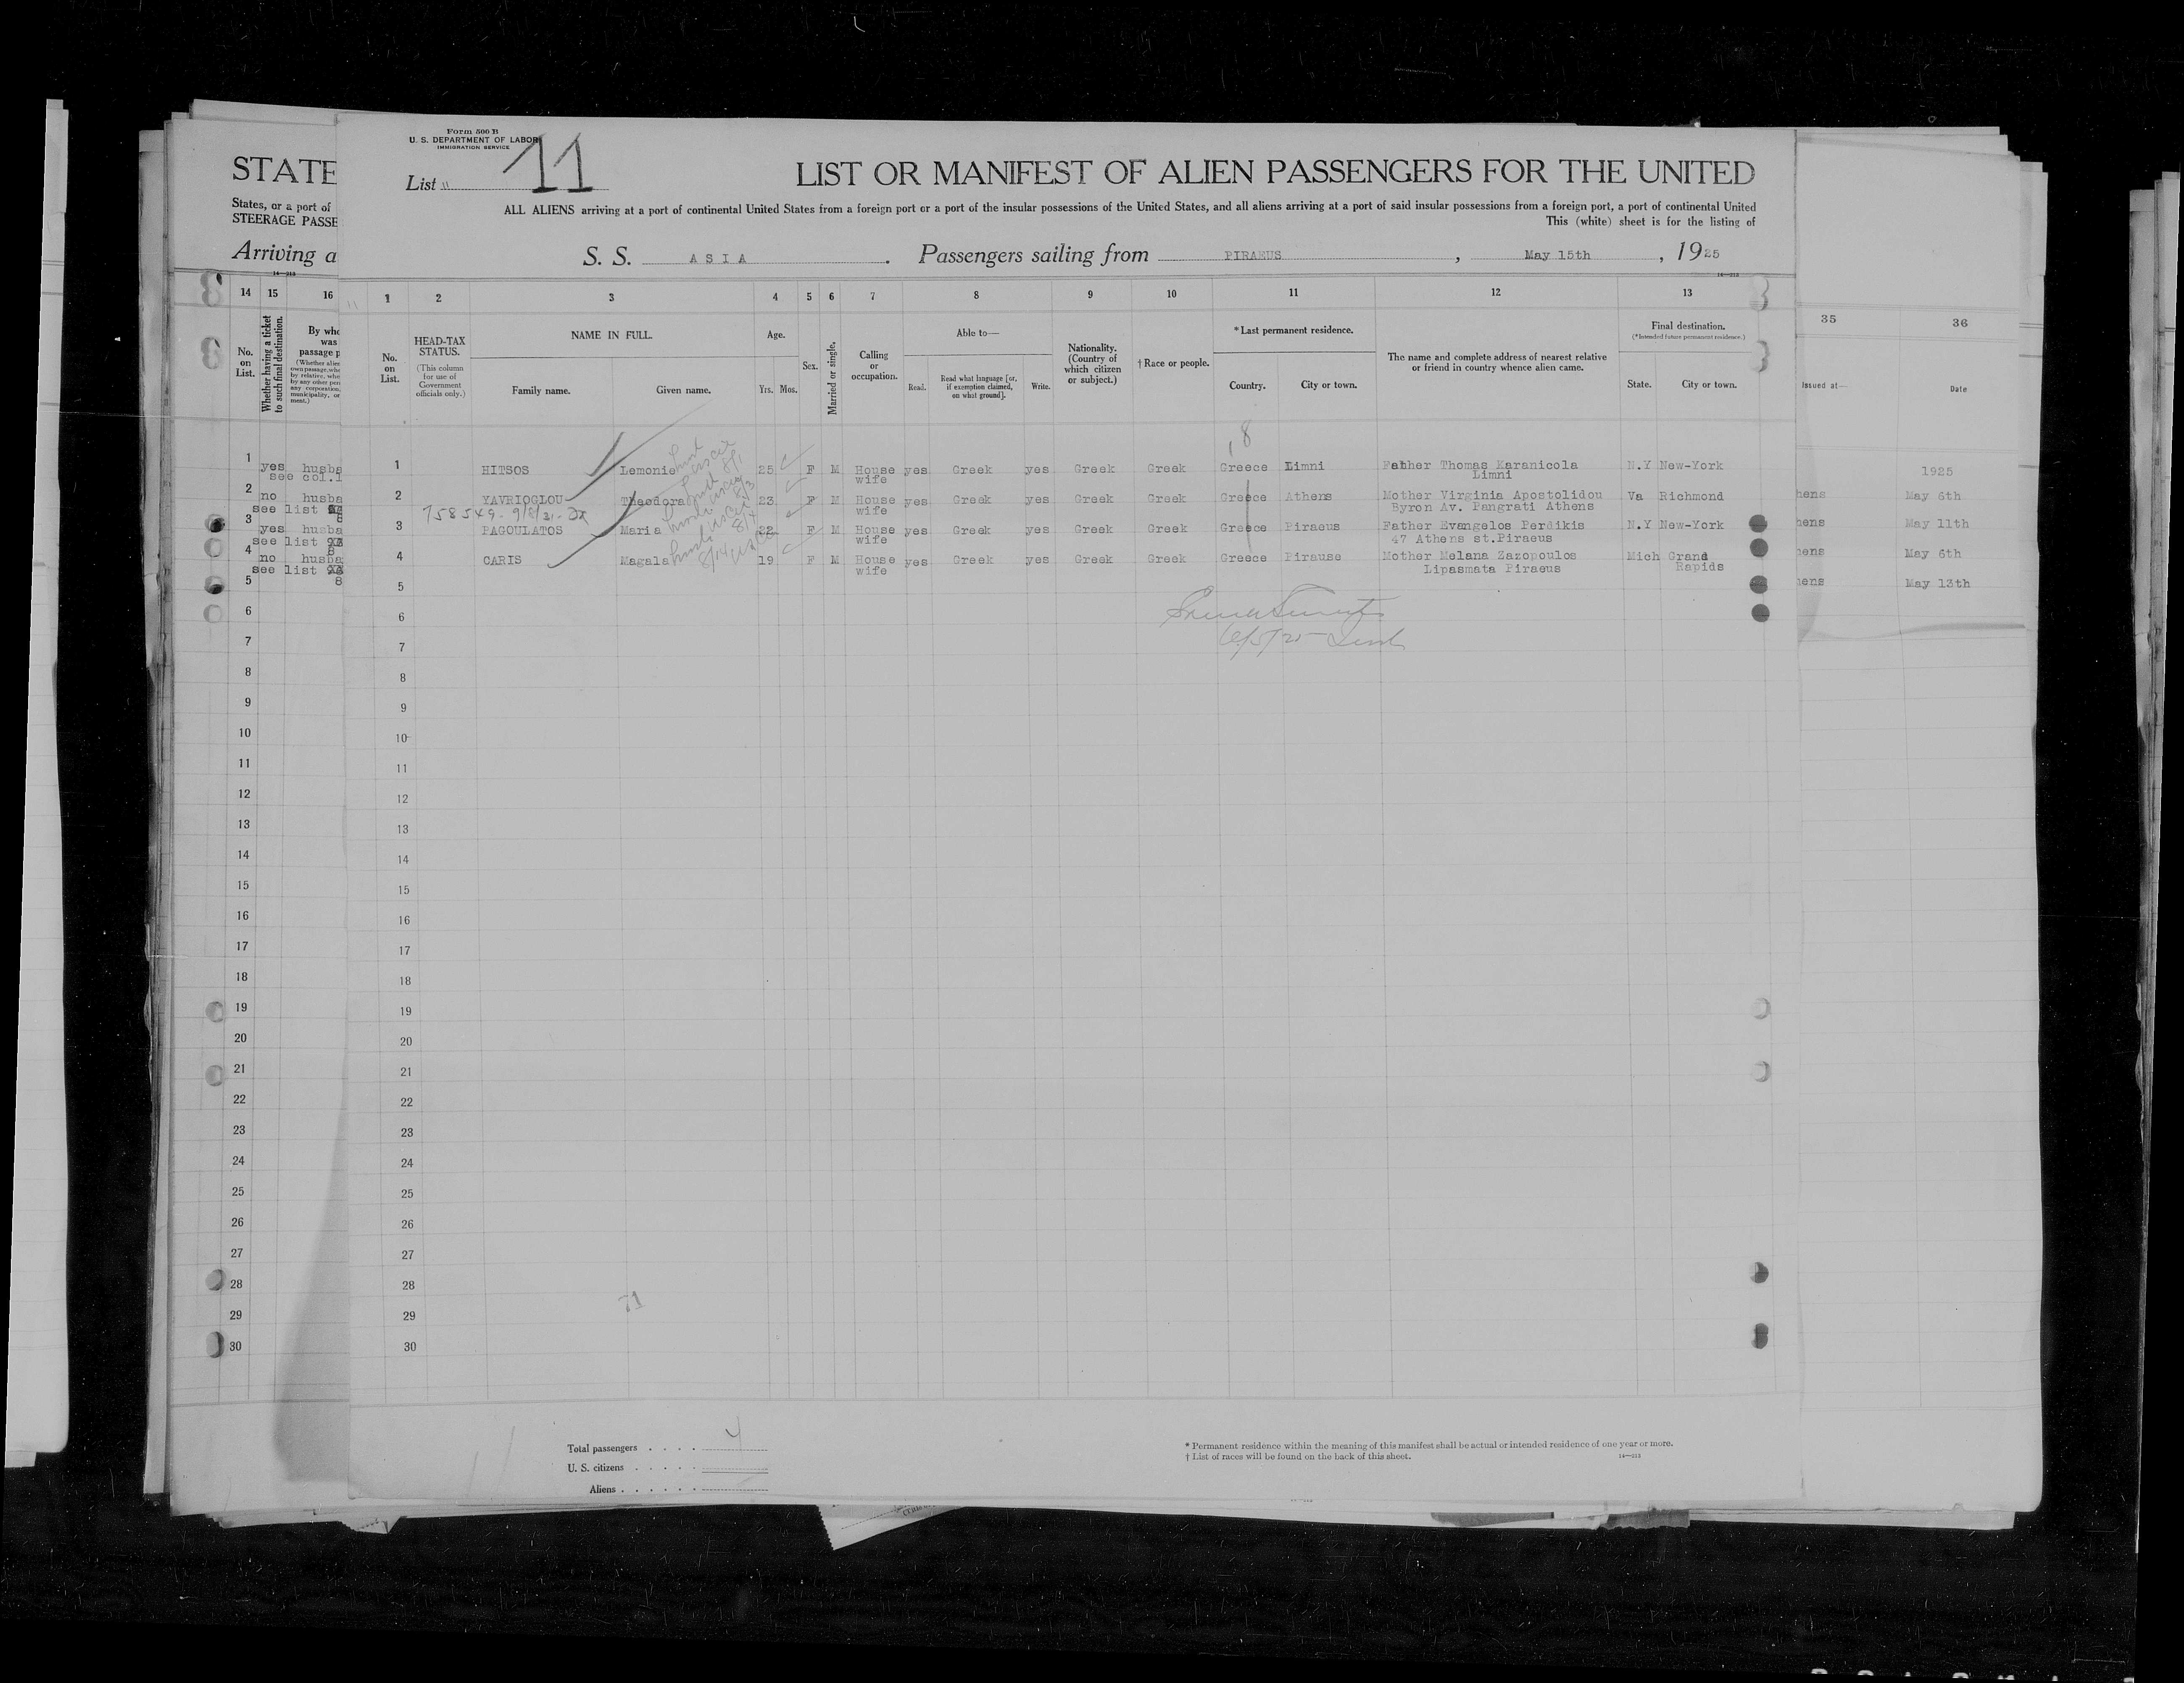 Form 500 B
U. S. DEPARTMENT OF LABOR
IMMIGRATION SERVICE
List 11
LIST OR MANIFEST OF ALIEN PASSENGERS FOR THE UNITED
ALL ALIENS arriving at a port of continental United States from a foreign port or a port of the insular possessions of the United States, and all aliens arriving at a port of said insular possessions from a foreign port, a port of continental United
This (white) sheet is for the listing of
S. S. ASIA. Passengers sailing from PIRAEUS, May 15th, 1925
14—213
1 2 3 4 5 6 7 8 9 10 11 12 13
No. on List.
HEAD-TAX STATUS.
(This column for use of Government officials only.)
NAME IN FULL.
Family name. Given name.
Age.
Yrs. Mos.
Sex.
Married or single.
Calling or occupation.
Able to—
Read. Read what language [or, if exemption claimed, on what ground]. Write.
Nationality. (Country of which citizen or subject.)
† Race or people.
* Last permanent residence.
Country. City or town.
The name and complete address of nearest relative or friend in country whence alien came.
Final destination.
(* Intended future permanent residence.)
State. City or town.
8
1 HITSOS Lemonie 25 F M House wife yes Greek yes Greek Greek Greece Limni Father Thomas Karanicola Limni N.Y New-York
2 YAVRIOGLOU Theodora 23 F M House wife yes Greek yes Greek Greek Greece Athens Mother Virginia Apostolidou Byron Av. Pangrati Athens Va Richmond
758549- 9/8/31-
3 PAGOULATOS Maria 22 F M House wife yes Greek yes Greek Greek Greece Piraeus Father Evangelos Perdikis 47 Athens st.Piraeus N.Y New-York
4 CARIS Magala 19 F M House wife yes Greek yes Greek Greek Greece Pirause Mother Melana Zazopoulos Lipasmata Piraeus Mich Grand Rapids
5
6
7
8
9
10
11
12
13
14
15
16
17
18
19
20
21
22
23
24
25
26
27
28
29
30
71
Total passengers . . . . 4
U. S. citizens . . . . .
Aliens . . . . . .
* Permanent residence within the meaning of this manifest shall be actual or intended residence of one year or more.
† List of races will be found on the back of this sheet.
14—213
STATE
States, or a port of
STEERAGE PASSE
Arriving a
14—213
14 15 16
No. on List.
Whether having a ticket to such final destination.
By who
was
passage p
1 yes husba
see col.1
2 no husba
see list
3 yes husba
see list
4 no husba
see list
5
6
7
8
9
10
11
12
13
14
15
16
17
18
19
20
21
22
23
24
25
26
27
28
29
30
35 36
Issued at— Date
1925
hens May 6th
hens May 11th
hens May 6th
hens May 13th